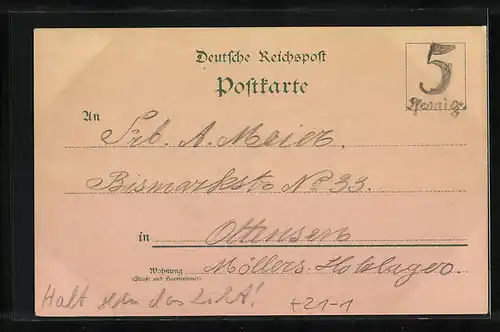 Deutsche Reichspost
Postkarte
5
Pfennig.
An
Frl. A. Meier.
Bismarkstr. No 33.
in Ottensen
Wohnung
(Straße und Hausnummer)
Möllers Holzlager.
Halt gegen das Licht!
+21-1